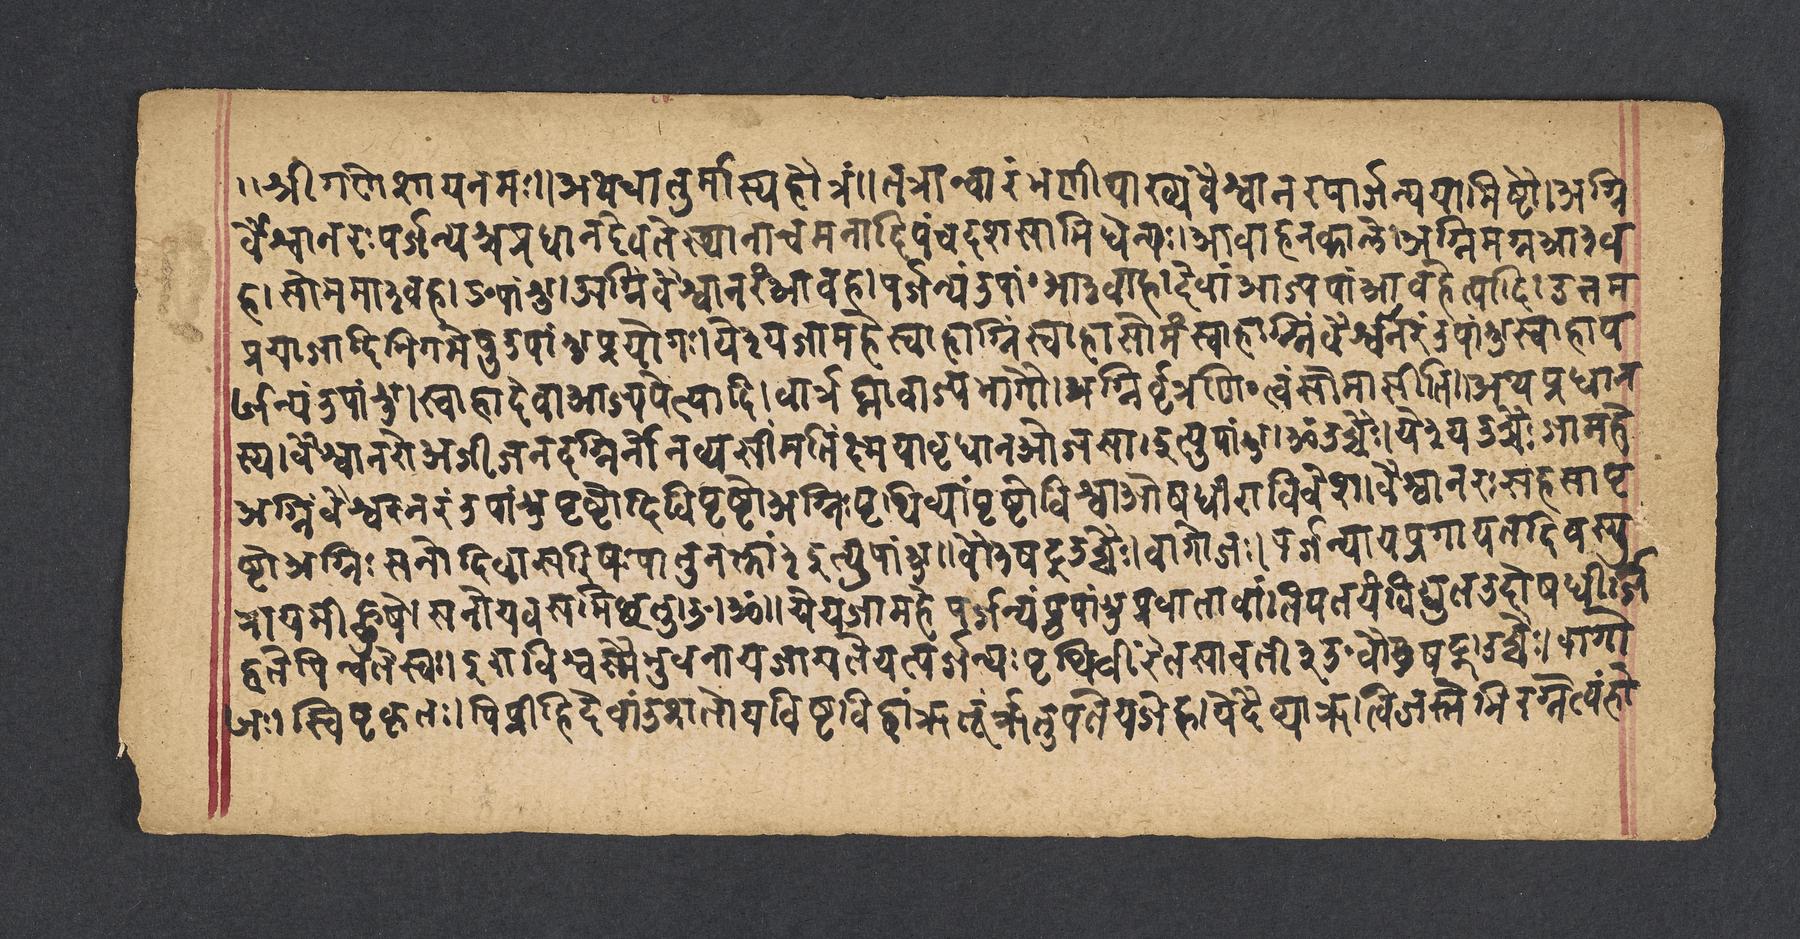 ॥श्रीगणेशायनमः॥अथचातुर्मास्यहौत्रं॥तत्रान्वारंभणीयाख्यवैश्वानरपार्जन्ययामिष्टौ।अग्नि
वैश्वानरःपर्जन्यश्चप्रधानदेवतेस्थानाचमनादिपंचदशसामिधेन्यः।आवाहनकाले।अग्निमग्नआ३व
ह।सोममा३वह।उपांशु।अग्निंवैश्वानरंआवह।पर्जन्यंउपां॰आ३वाह।देवांआज्यपांआवहेत्यादि।उत्तम
प्रयाजादिनिगमेषुउपांशुप्रयोगः।ये३यजामहेस्वाहाग्निंस्वाहासोमंस्वाहाग्निंवैश्वानरंउपांशुस्वाहाप
र्जन्यंउपांशु।स्वाहादेवाआज्यपेत्यादि।वार्त्रघ्नावाज्यभागौ।अग्निर्वृत्राणि॰त्वंसोमासीति।अथप्रधान
स्य।वैश्वानरोअजीजनदग्निर्नोनव्यसींमतिंक्ष्मयावृधानओजसा।इत्युपांशु।ॐउच्चैः।ये३यउच्चैःजामहे
अग्निंवैश्वानरंउपांशुपृष्टोदिविपृष्टोअग्निःपृथिव्यांपृष्टोविश्वाओषधीराविवेश।वैश्वानरःसहसापृ
ष्टोअग्निःसनोदिवासरिषःपातुनक्तों३इत्युपांशु॥वौ३षट्उच्चैः।वागोजः।पर्जन्यायप्रगायतदिवस्पु
त्रायमीह्ळुषे।सनोयवसमिच्छतु।उ॰ॐ॥येयजामहेपर्जन्यंउपांशुप्रवातावांतिपतयंविद्युतउदोषधीर्जि
हतेपिन्वतेस्वः।इराविश्वस्मैभुवनायजायतेयत्पर्जन्यःपृथिवींरेतसावती३उ॰वौ३षट्उच्चैः।वागो
जः।स्विष्टकृतः।पिप्रीहिदेवांउशतोयविष्टविद्वांऋतूंर्ऋतुपतेयजेह।येदैव्याऋत्विजस्तेभिरग्नेत्वंहो